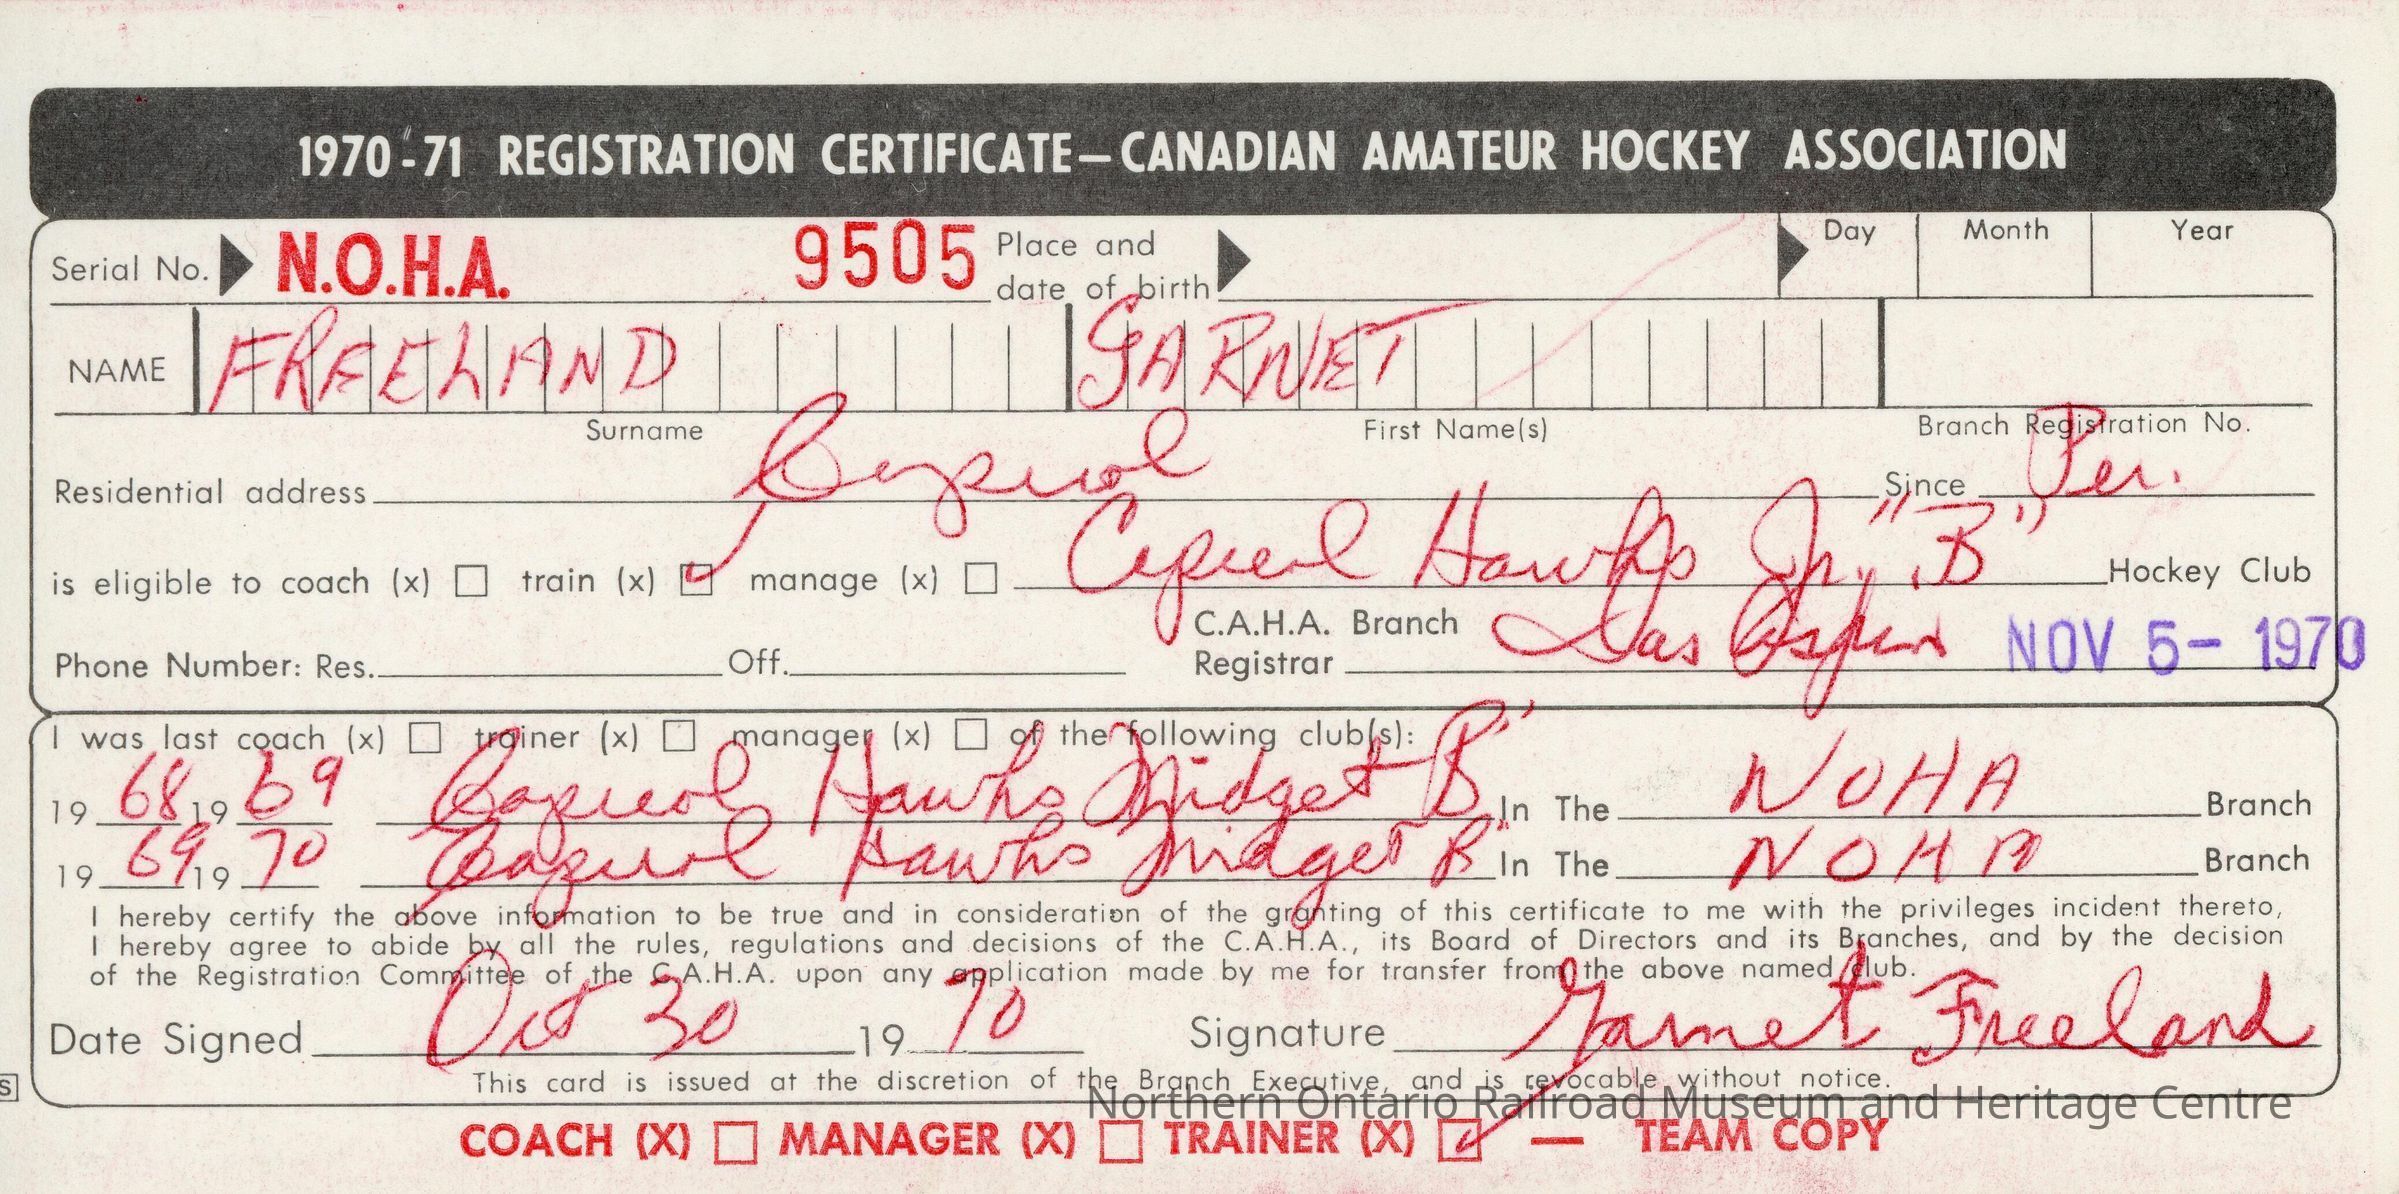 1970-71 REGISTRATION CERTIFICATE—CANADIAN AMATEUR HOCKEY ASSOCIATION
Serial No. N.O.H.A. 9505 Place and date of birth Day Month Year
NAME FREELAND GARNET
Surname First Name(s) Branch Registration No.
Residential address Capreol Since Per.
is eligible to coach (x) train (x) manage (x) Capreol Hawks Jr. "B" Hockey Club
Phone Number: Res. Off. C.A.H.A. Branch Registrar NOV 5- 1970
I was last coach (x) trainer (x) manager (x) of the following club(s):
19 68 19 69 Capreol Hawks Midget "B" In The NOHA Branch
19 69 19 70 Capreol Hawks Midget "B" In The NOHA Branch
I hereby certify the above information to be true and in consideration of the granting of this certificate to me with the privileges incident thereto,
I hereby agree to abide by all the rules, regulations and decisions of the C.A.H.A., its Board of Directors and its Branches, and by the decision
of the Registration Committee of the C.A.H.A. upon any application made by me for transfer from the above named club.
Date Signed Oct 30 19 70 Signature Garnet Freeland
This card is issued at the discretion of the Branch Executive, and is revocable without notice.
Northern Ontario Railroad Museum and Heritage Centre
COACH (X) MANAGER (X) TRAINER (X) — TEAM COPY